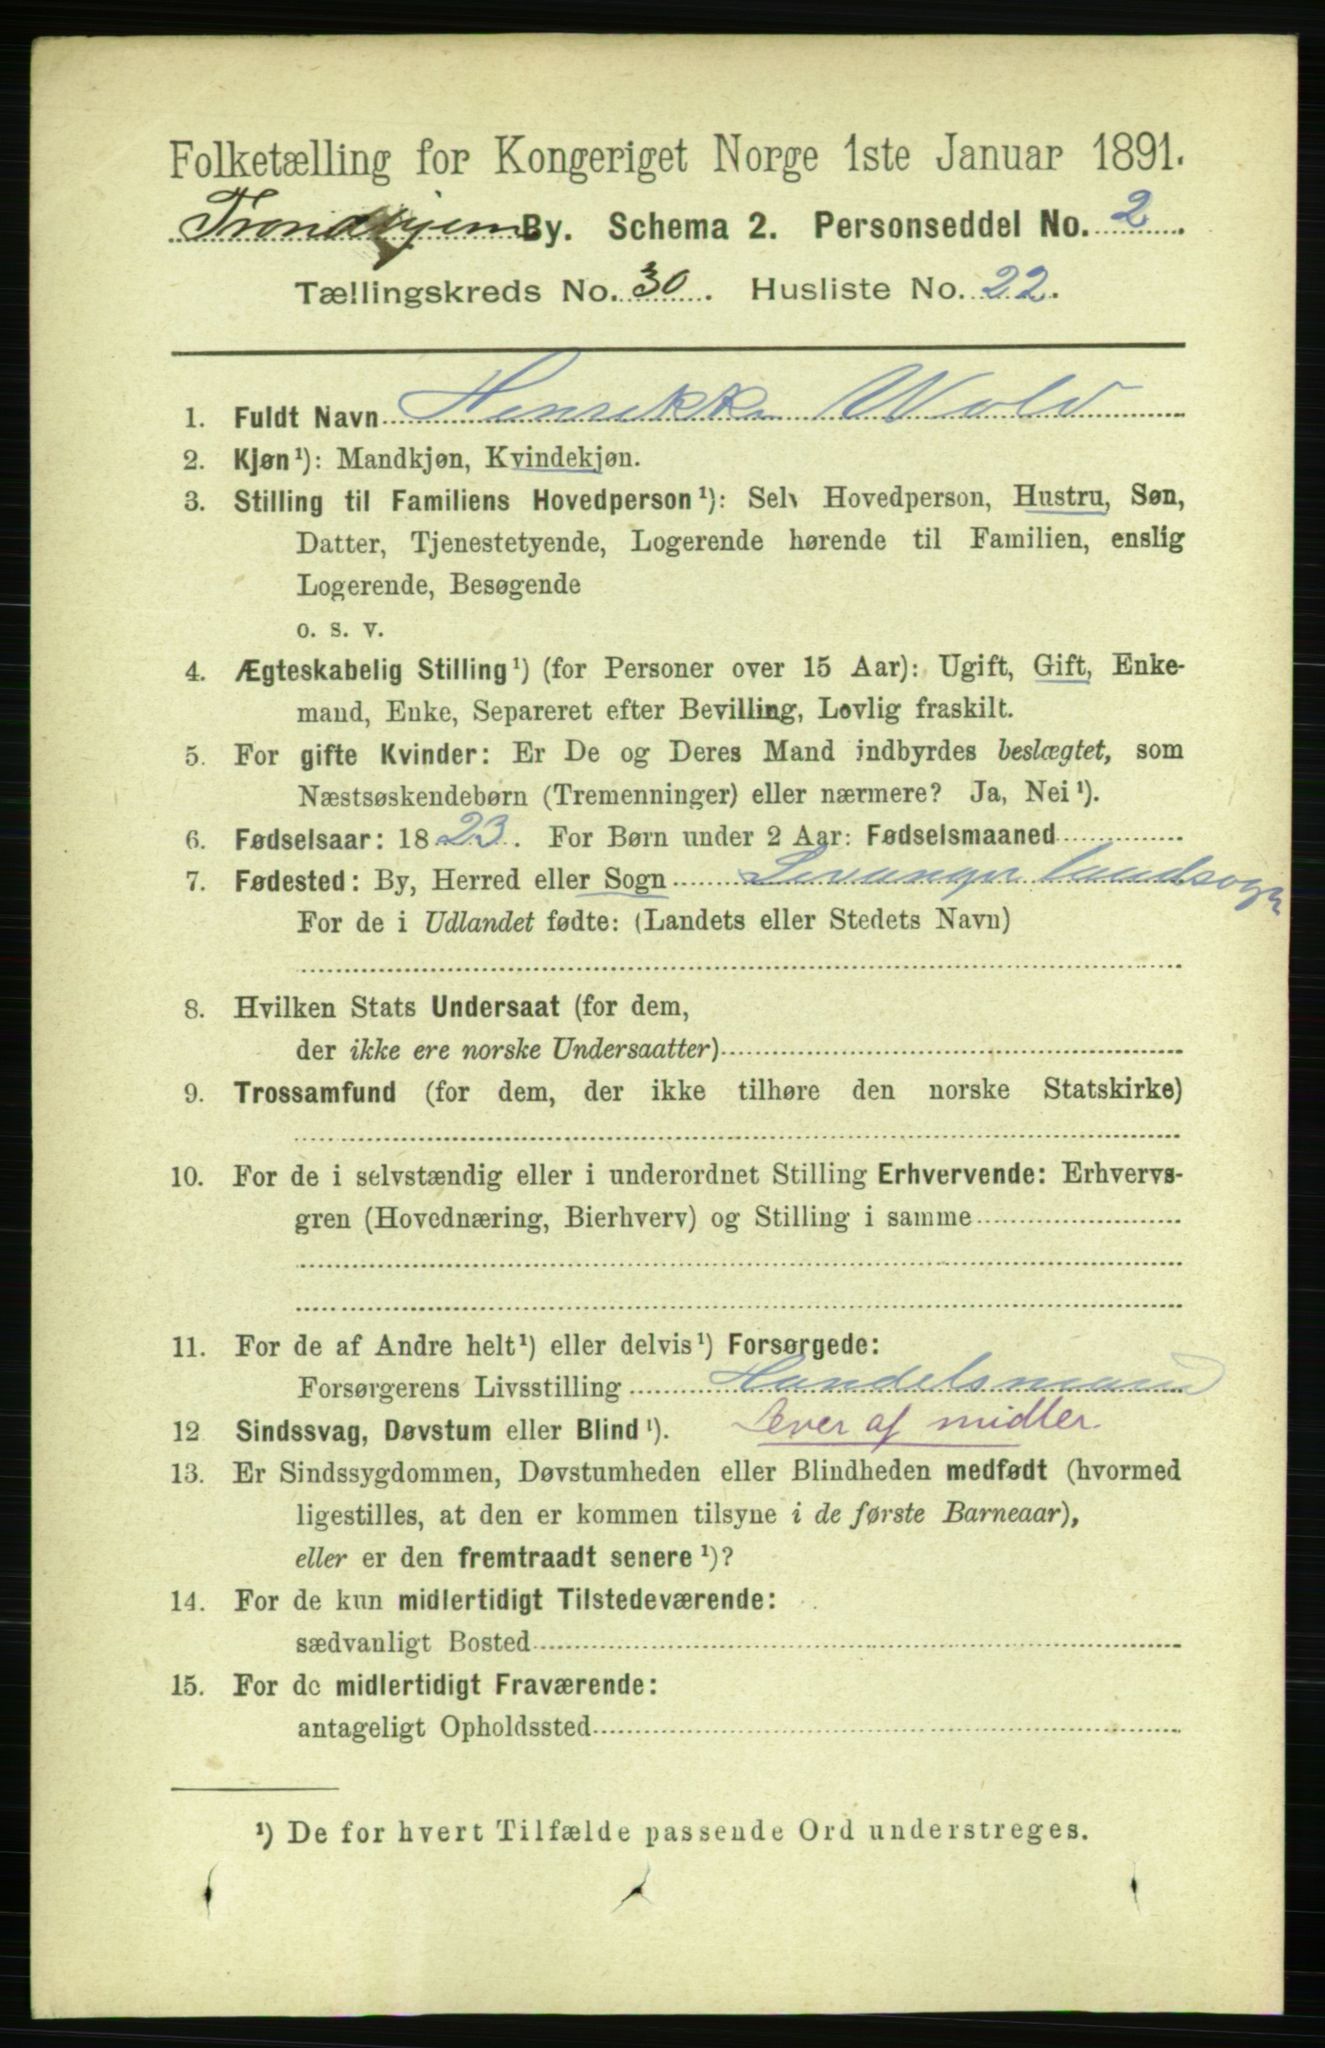 Folketælling for Kongeriget Norge 1ste Januar 1891.
Trondhjem By. Schema 2. Personseddel No. 2
Tællingskreds No. 30. Husliste No. 22.
1. Fuldt Navn Henrikke Wold
2. Kjøn¹): Mandkjøn, Kvindekjøn.
3. Stilling til Familiens Hovedperson¹): Selv Hovedperson, Hustru, Søn,
Datter, Tjenestetyende, Logerende hørende til Familien, enslig
Logerende, Besøgende
o. s. v.
4. Ægteskabelig Stilling¹) (for Personer over 15 Aar): Ugift, Gift, Enke-
mand, Enke, Separeret efter Bevilling, Lovlig fraskilt.
5. For gifte Kvinder: Er De og Deres Mand indbyrdes beslægtet, som
Næstsøskendebørn (Tremenninger) eller nærmere? Ja, Nei¹).
6. Fødselsaar: 1823. For Børn under 2 Aar: Fødselsmaaned
7. Fødested: By, Herred eller Sogn Levanger landsogn
For de i Udlandet fødte: (Landets eller Stedets Navn)
8. Hvilken Stats Undersaat (for dem,
der ikke ere norske Undersaatter)
9. Trossamfund (for dem, der ikke tilhøre den norske Statskirke)
10. For de i selvstændig eller i underordnet Stilling Erhvervende: Erhvervs-
gren (Hovednæring, Bierhverv) og Stilling i samme
11. For de af Andre helt¹) eller delvis¹) Forsørgede:
Forsørgerens Livsstilling Handelsmand
12 Sindssvag, Døvstum eller Blind¹). Lever af midler
13. Er Sindssygdommen, Døvstumheden eller Blindheden medfødt (hvormed
ligestilles, at den er kommen tilsyne i de første Barneaar),
eller er den fremtraadt senere¹)?
14. For de kun midlertidigt Tilstedeværende:
sædvanligt Bosted
15. For de midlertidigt Fraværende:
antageligt Opholdssted
¹) De for hvert Tilfælde passende Ord understreges.